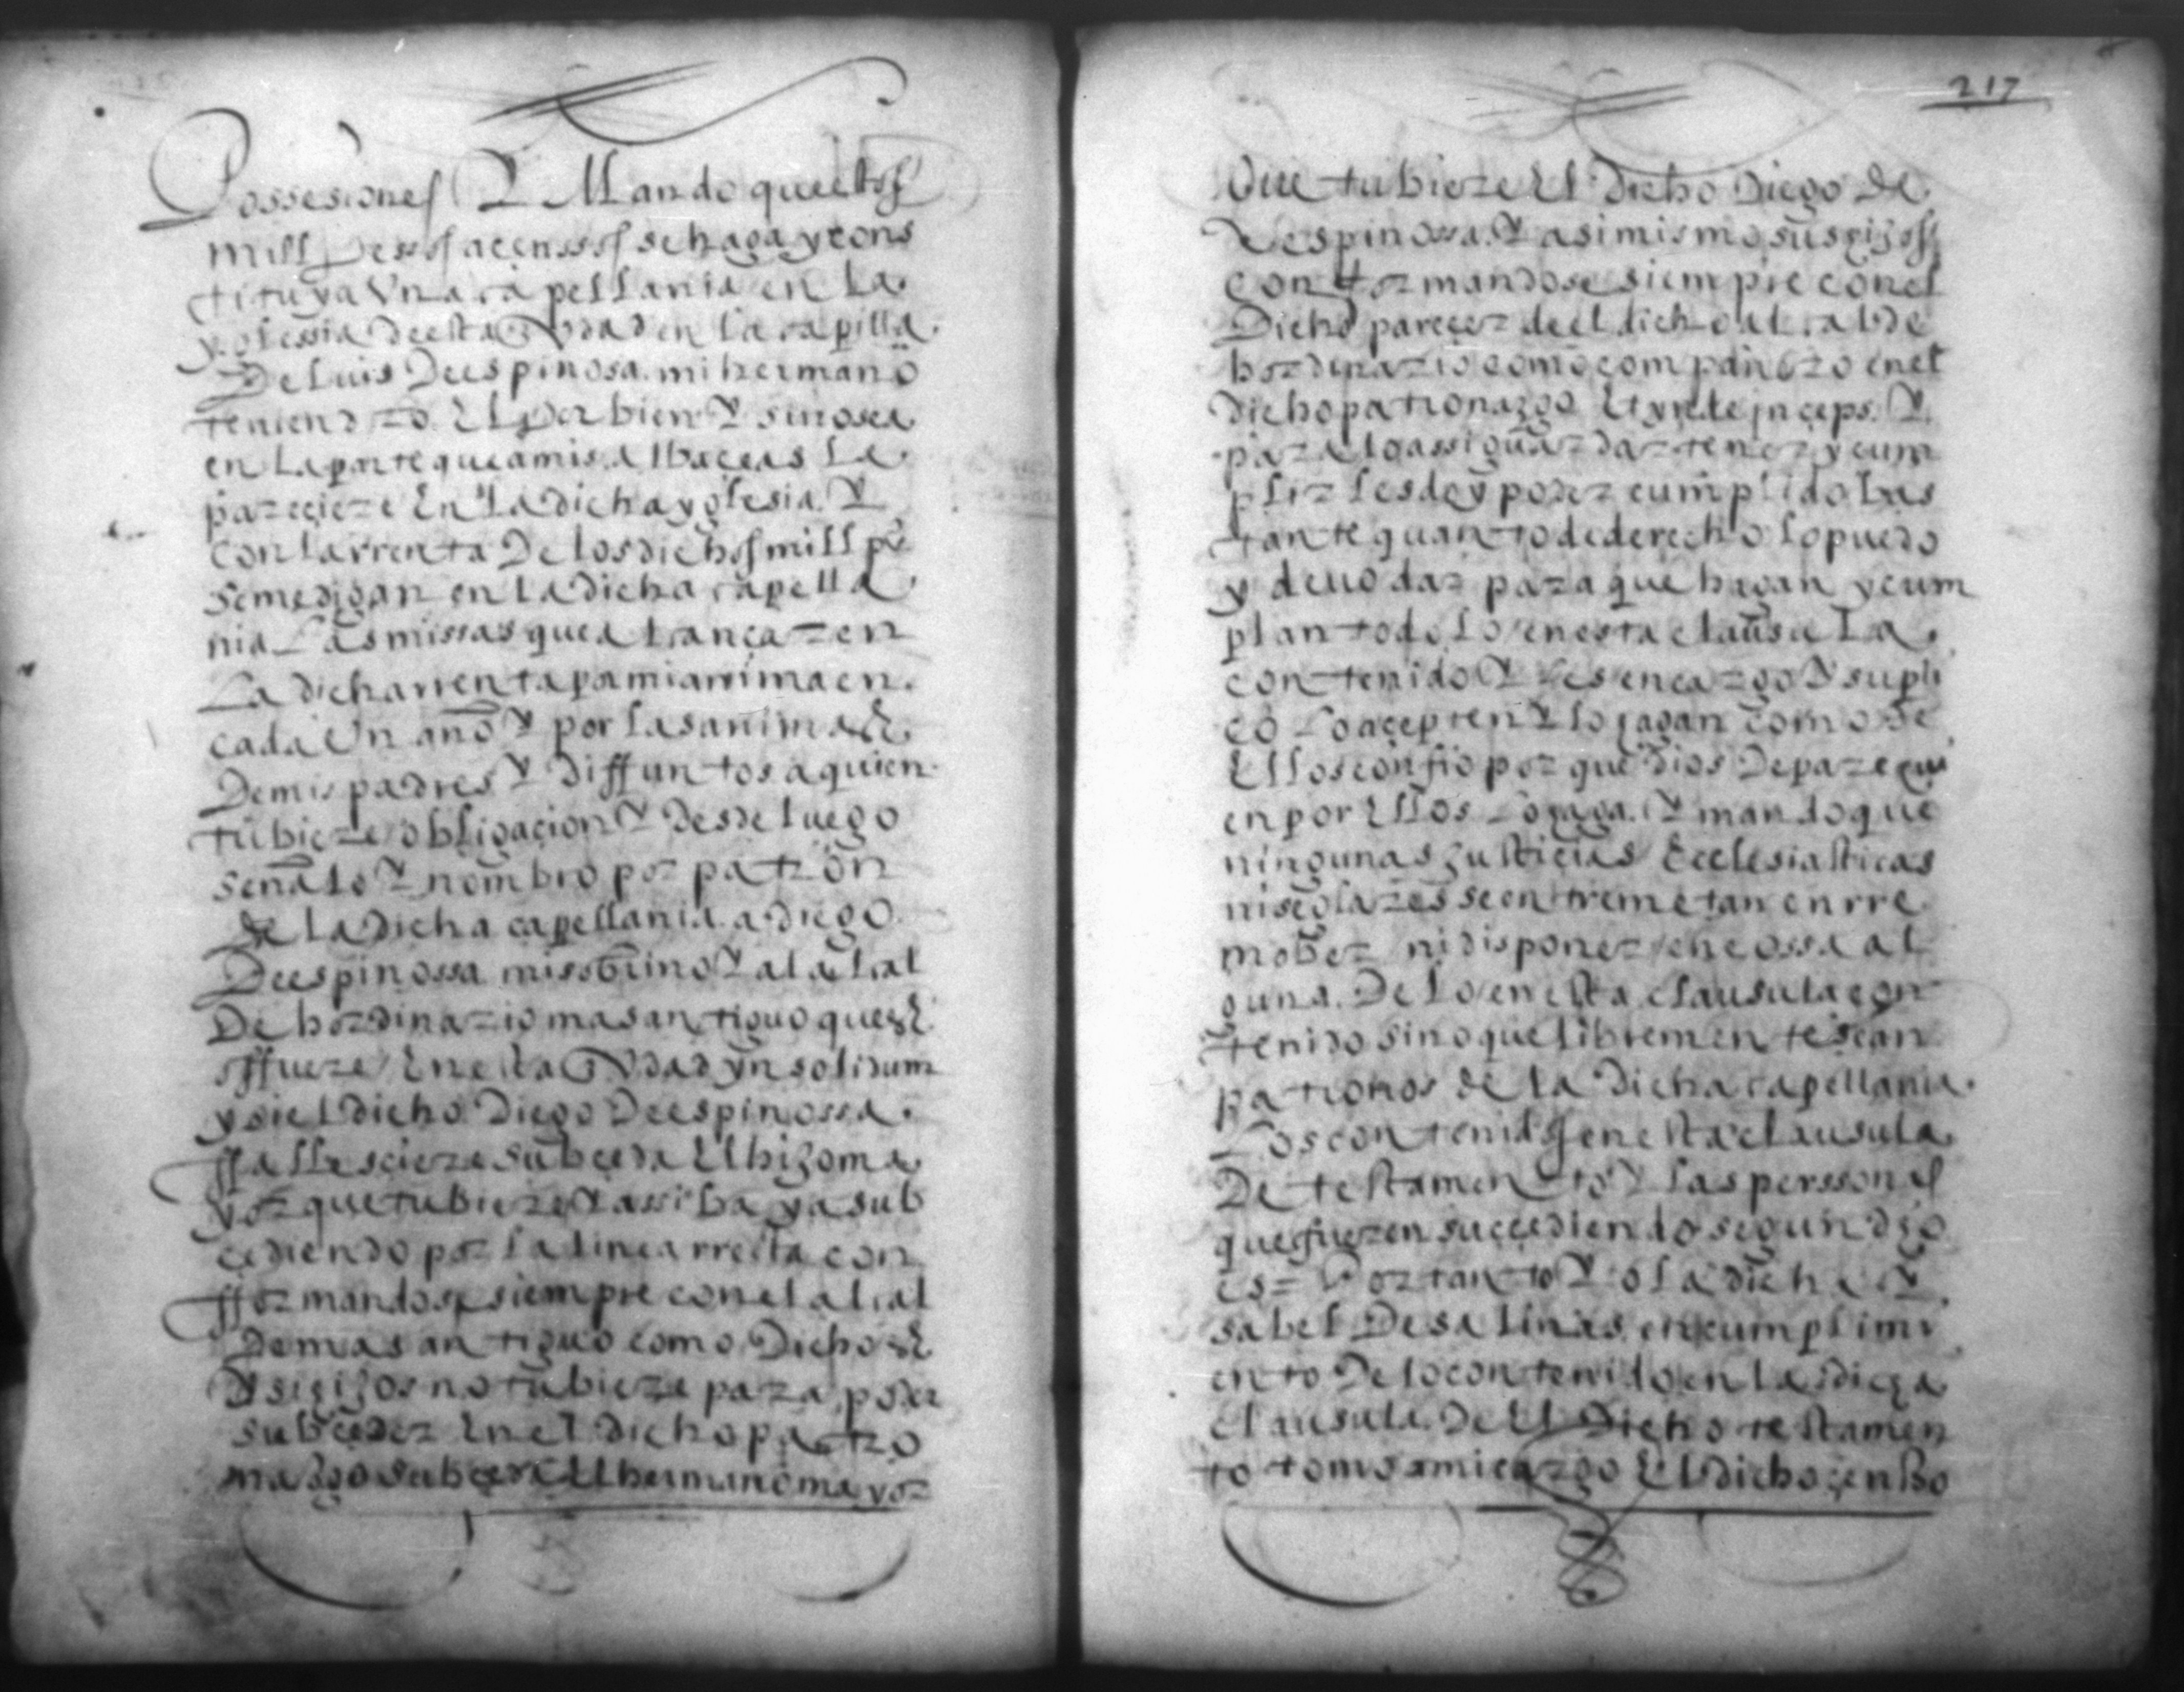 Possesiones Y Mando que estos
mill pessos a çenssos se haga y cons
tituya Una capellania en La
yglessia de esta ciudad en la capilla
De Luis De espinosa mi hermano
teniendo El por bien Y si no sea
en La parte que a mis Albaçeas Le
pareçiere En la dicha yglesia Y
con la rrenta De los dichos mill ps
se me digan en la dicha capella
nia Las missas que alcançaren
La dicha rrenta pa mi anima en
cada Un año Y por las animas
De mis padres Y diffuntos a quien
tubiere obligaçion Y desde luego
señalo Y nombro por patron
de la dicha capellania a diego
De espinossa mi ssobrino Y al alcal
De hordinario mas antiguo que es E
ffuere En esta ciudad yn solidum
y si el dicho Diego De espinossa
ffallesciere subçeda El hijo ma
yor que tubiere Y assi baya sub
çediendo por la linea rrecta con
fformandose siempre con el alcal
De mas antiguo como Dicho es
Y si hijos no tubiere para poder
subçeder En el dicho patro
nazgo subçeda El hermano mayor
217
Que tubiere El dicho Diego de
De espinossa Y asimismo sus hijos
conformandose siempre con el
Dicho pareçer de el dicho alcalde
hordinario como compañero en el
dicho patronazgo Et ynde inçeps Y
para lo assi guardar tener y cum
plir les doy poder cumplido bas
tante quanto de derecho lo puedo
y deuo dar para que hagan y cum
plan todo Lo en esta clausula
contenido Y les encargo Y supli
co Lo açepten Y lo hagan como de
Ellos confio por que dios Depare qui
en por Ellos Lo haga Y mando que
ningunas justiçias Ecclesiasticas
ni seglares se entremetan en rre
mober ni disponer en cossa al
guna De Lo en esta clausula con
tenido sino que libremente sean
patronos de la dicha capellania
Los contenidos en esta clausula
De testamento Y las perssonas
que fueren suççediendo segun dho
es= Por tanto Yo la dicha Y
sabel De salinas en cumplimi
ento De lo contenido en la dicha
clausula De El Dicho testamen
to tomo a mi cargo El dicho çensso